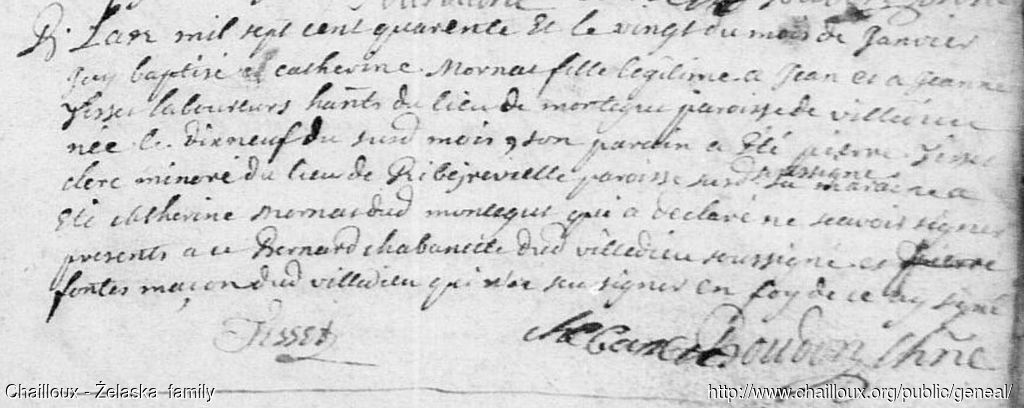 B. L'an mil sept cent quarente et le vingt du mois de Janvier
Jay baptisé Catherine Mornat fille legitime a Jean et a Jeanne
Tisset laboureurs hants du lieu de montegut paroisse de villedieu
née le dixneuf du susd mois, son parein a Eté pierre Tisset
soussigné
clerc minoré du lieu de Ribeyrevieille paroisse susd. sa maraine a
Eté Catherine Mornat dud montegut qui a declaré ne scavoir signer
presents a ce Bernard chabanette dud villedieu soussigné et pierre
fontes maçon dud villedieu qui n'a seu signer en foy de ce Jay signé
Tisset
Boudon
Chailloux - Želaska family
http://www.chailloux.org/public/geneal/